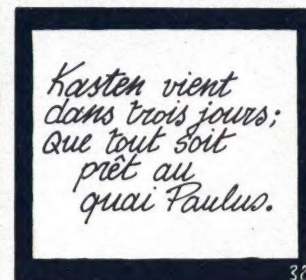 Kasten vient
dans trois jours;
Que tout soit
prêt au
quai Paulus.